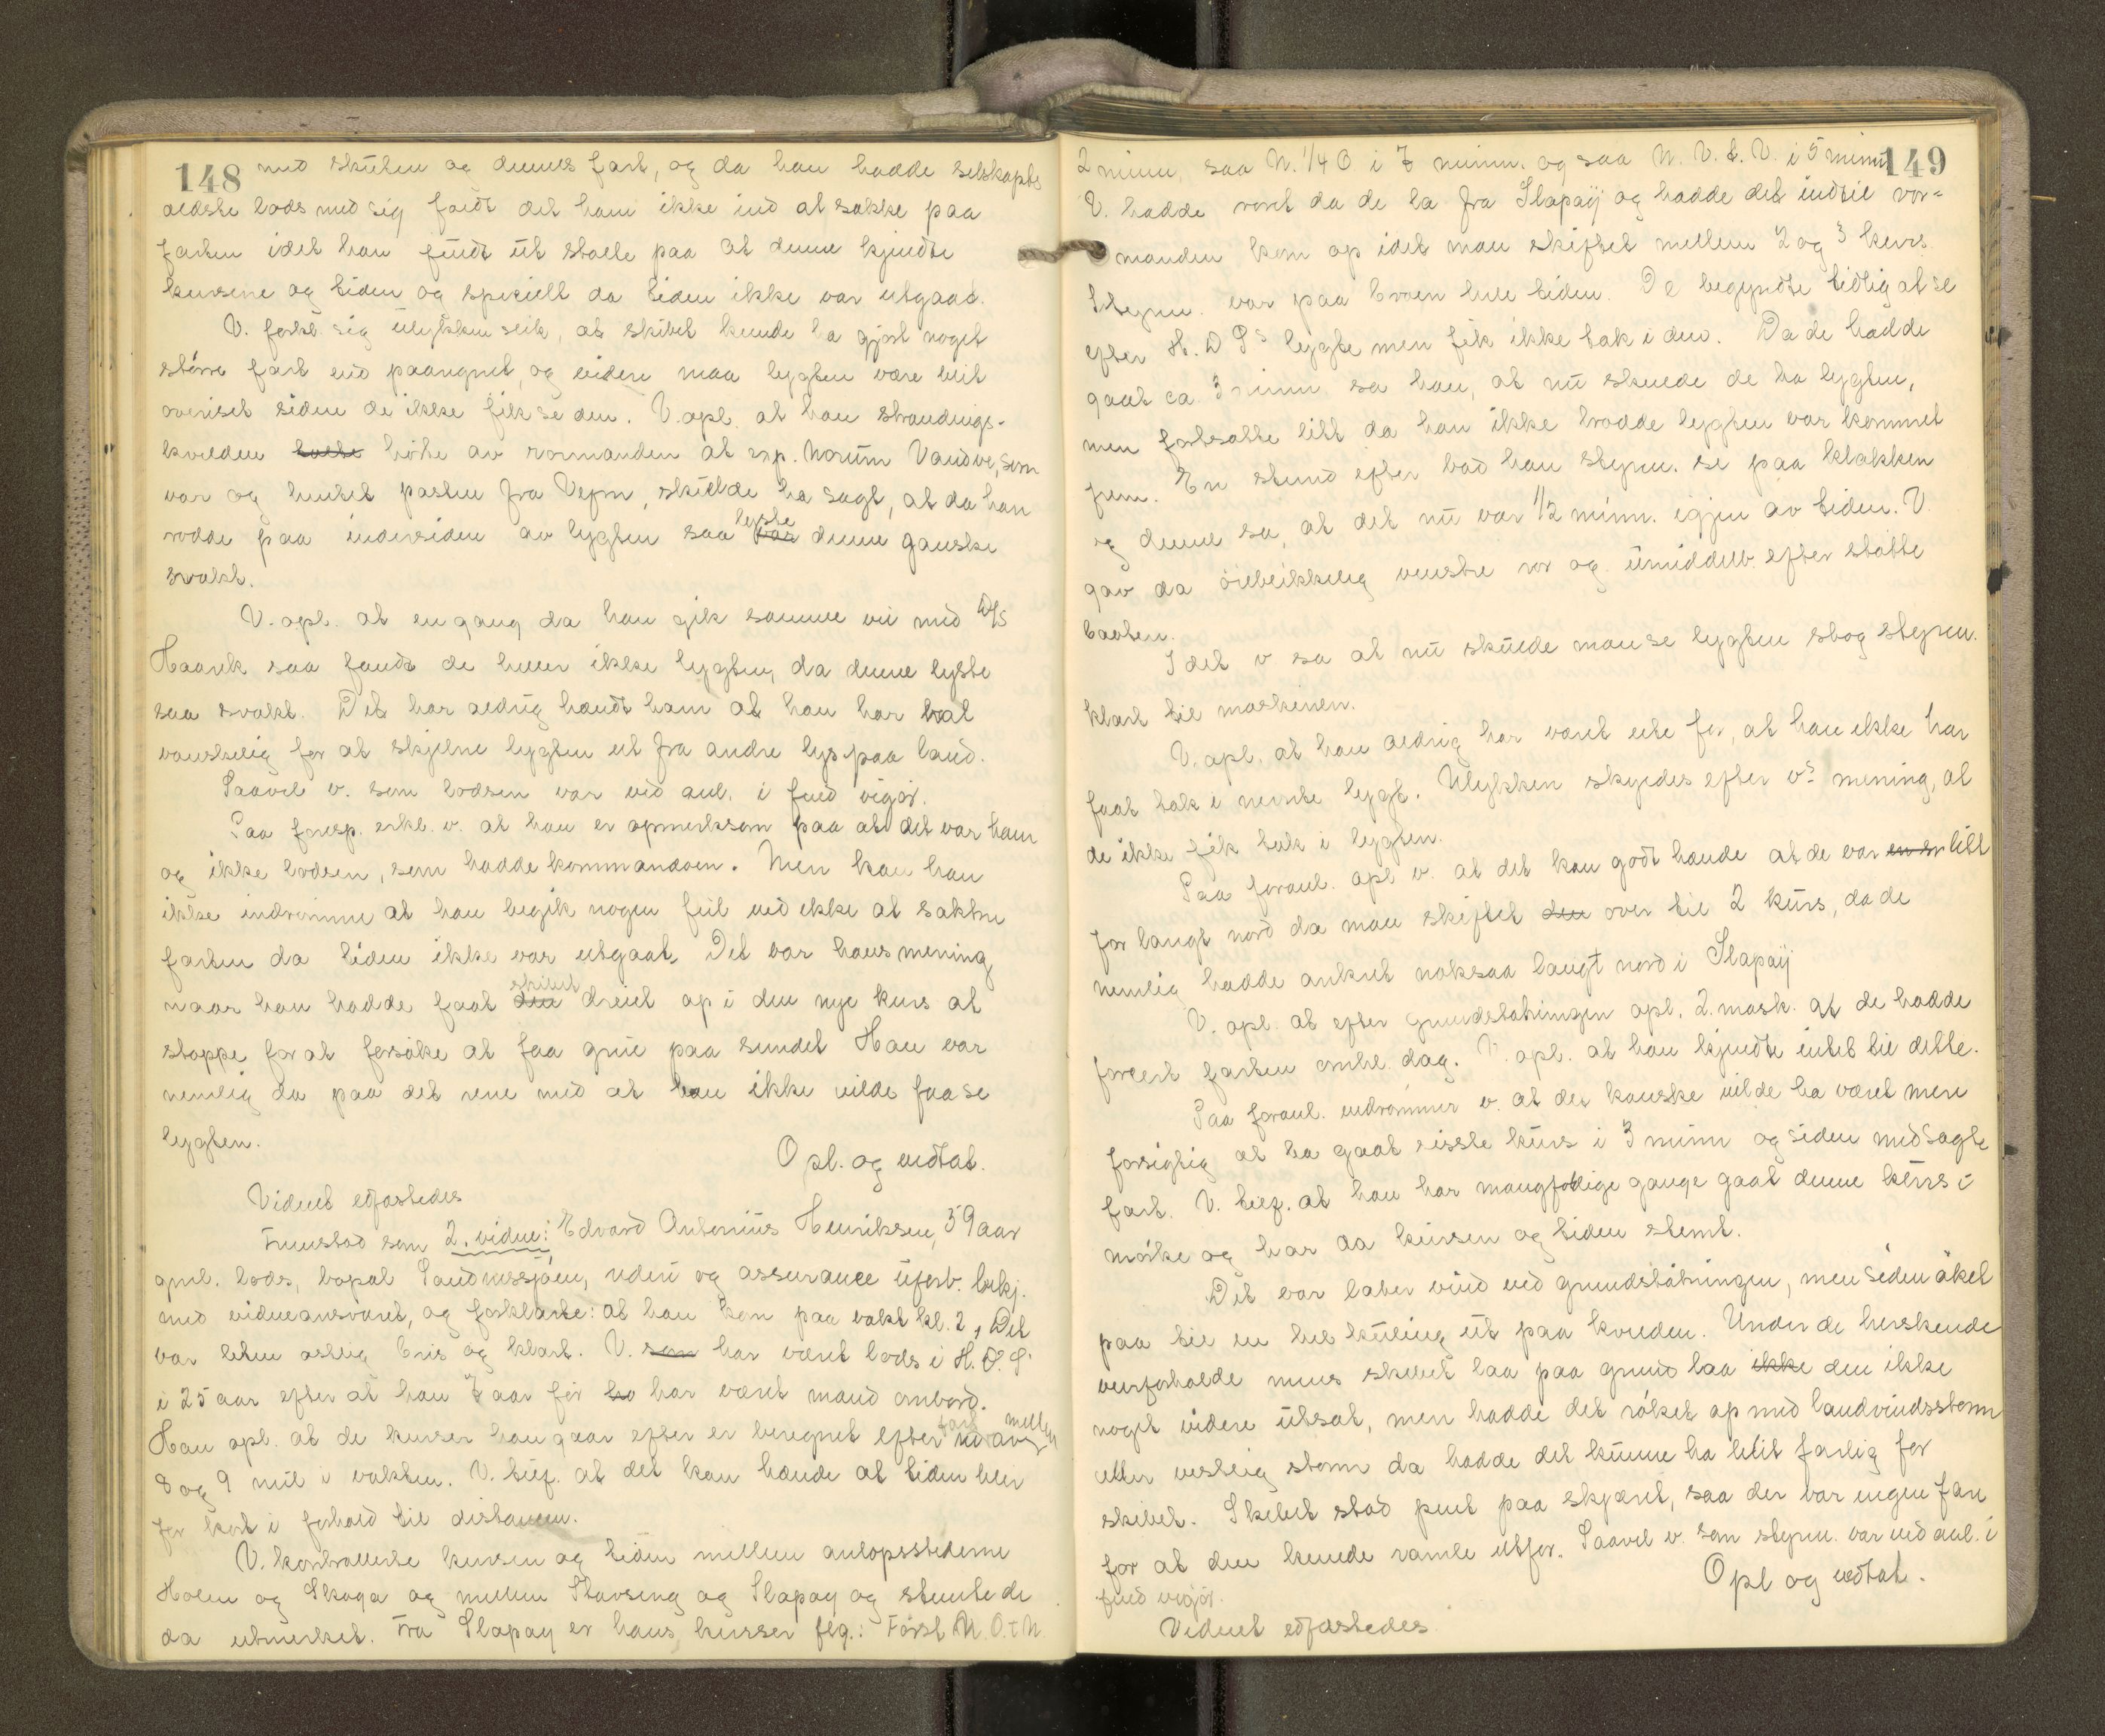 148
med skuten og dennes fart, og da han hadde selskapets
ældste lods med sig faldt det ham ikke ind at sakke paa
farten idet han fuldt ut stolte paa at denne kjendte
kursene og tiden og specielt da tiden ikke var utgaat.
V. forkl. sig ulykken slik, at skibet kunde ha gjort noget
större fart end paaregnet, og videre maa lygten være blit
overiset siden de ikke fik se den. V. opl. at han strandings-
kvelden hørte av rormanden at exp. Norum Vandve, som
var og hentet posten fra Vefsn, skulde ha sagt, at da han
rodde paa indersiden av lygten saa lyste denne ganske
svakt.
V. opl. at en gang da han gik samme vei med D/S
Haarek saa fandt de heller ikke lygten, da denne lyste
saa svakt. Det har aldrig hændt ham at han har hat
vanskelig for at skjelne lygten ut fra andre lys paa land.
Saavel v. som lodsen var ved anl. i fuld vigör.
Paa foresp. erkl. v. at han er opmerksom paa at det var ham
og ikke lodsen, som hadde kommandoen. Men kan han
ikke indrömme at han begik nogen feil ved ikke at saktne
farten da tiden ikke var utgaat. Det var hans mening
naar han hadde faat skibet dreiet op i den nye kurs at
stoppe for at forsöke at faa greie paa sundet Han var
nemlig da paa det rene med at han ikke vilde faa se
lygten.
Opl. og vedtat.
Vidnet edfæstedes
Fremstod som 2. vidne: Edvard Antonius Henriksen, 59 aar
gml. lods, bopæl Sandnessjöen, uden og assurance uforb. bekj.
med vidneansvaret, og forklarte: at han kom paa vakt kl. 2, Det
var liten östlig bris og klart. V. har været lods i H. D. S.
i 25 aar efter at han 7 aar för har været mand ombord.
Han opl. at de kurser han gaar efter er beregnet efter fart av mellem
8 og 9 mil i vakten. V. tilf. at det kan hænde at tiden blir
for kort i forhold til distansen.
V. kontrollerte kursen og tiden mellem anlöpsstederne
Holm og Skoga og mellem Stavseng og Slapöy og stemte de
da utmerket. Fra Slapöy er hans kurser flg.: Först N. O. t N
149
2 minn, saa N. 1/4 O i 7 minn. og saa N. V. t. V. i 5 minn
V. hadde roret da de la fra Slapöy og hadde det indtil ror-
manden kom op idet man skiftet mellem 2 og 3 kurs.
Styrm. var paa broen hele tiden. De begyndte tidlig at se
efter H. D Ss lygte men fik ikke tak i den. Da de hadde
gaat ca 3 minn sa han, at nu skulde de ha lygten,
men fortsatte litt da han ikke trodde lygten var kommet
frem. En stund efter bad han styrm. se paa klokken
og denne sa, at det nu var 1/2 minn. igjen av tiden. V.
gav da öieblikkelig venstre ror og umiddelb. efter stötte
baaten.
Idet v. sa at nu skulde man se lygten slog styrm.
klart til maskinen.
V. opl. at han aldrig har været ute for, at han ikke har
faat tak i nevnte lygt. Ulykken skyldes efter vs mening, at
de ikke fik tak i lygten.
Paa foranl. opl v. at det kan godt hænde at de var litt
for langt nord da man skiftet over til 2 kurs, da de
nemlig hadde ankret noksaa langt nord i Slapöy
V. opl. at efter grundstötningen opl. 2. mask. at de hadde
forcert farten omhl. dag. V. opl. at han kjendte intet til dette.
Paa foranl. indrömmer v. at det kanske vilde ha været mere
forsigtig at ha gaat sisste kurs i 3 minn og siden med sagte
fart. V. tilf. at han har mangfoldige gange gaat denne kurs i
mörke og har da kursen og tiden stemt.
Det var laber vind ved grundstötningen, men siden öket
paa til en hel kuling ut paa kvelden. Under de herskende
veirforholde mens skibet laa paa grund laa den ikke
noget videre utsat, men hadde det röket op med landvindsstorm
eller vestlig storm da hadde det kunne ha blit farlig for
skibet. Skibet stod pent paa skjæret, saa der var ingen fare
for at den kunde ramle utfor. Saavel v. som styrm. var ved anl. i
fuld vigör.
Opl og vedtat.
Vidnet edfæstedes